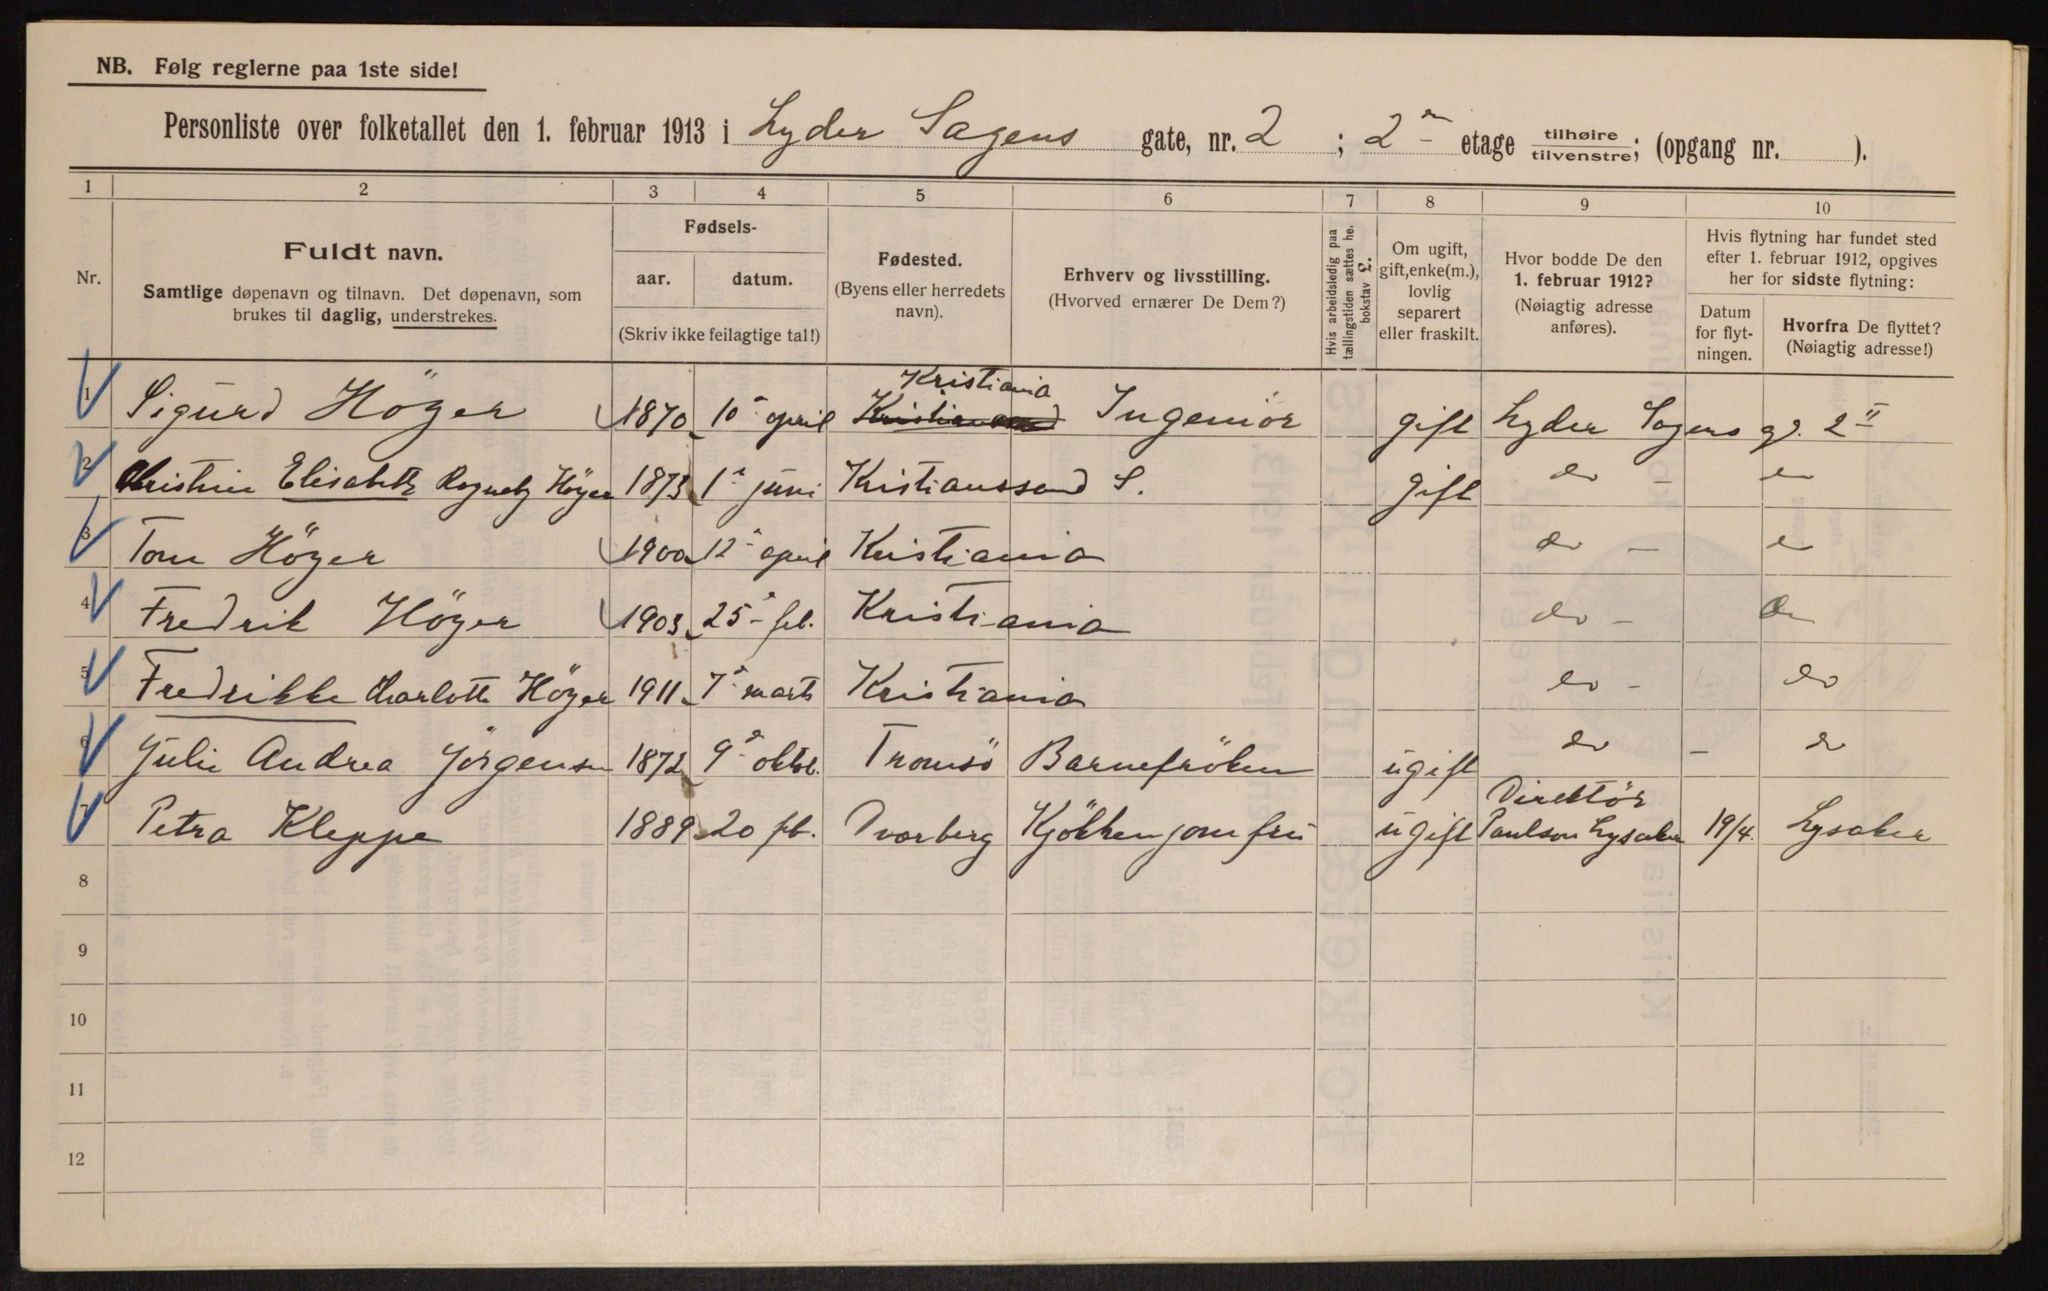 NB. Følg reglerne paa 1ste side!
Personliste over folketallet den 1. februar 1913 i Lyder Sagens gate, nr. 2 ; 2 etage tilhøire/tilvenstre; (opgang nr. ).
1 2 3 4 5 6 7 8 9 10
Nr.
Fuldt navn.
Samtlige døpenavn og tilnavn. Det døpenavn, som
brukes til daglig, understrekes.
Fødsels-
aar. datum.
(Skriv ikke feilagtige tal!)
Fødested.
(Byens eller herredets
navn).
Erhverv og livsstilling.
(Hvorved ernærer De Dem?)
Hvis arbeidsledig paa
tællingstiden sættes he.
bokstav L.
Om ugift,
gift, enke(m.),
lovlig
separert
eller fraskilt.
Hvor bodde De den
1. februar 1912?
(Nøiagtig adresse
anføres).
Hvis flytning har fundet sted
efter 1. februar 1912, opgives
her for sidste flytning:
Datum
for flyt-
ningen.
Hvorfra De flyttet?
(Nøiagtig adresse!)
Kristiania
1 Sigurd Höyer 1870 10 april Kristianssand Ingeniör gift Lyder Sagens gd. 2 II
2 Christine Elisabeth Höyer 1873 1 juni Kristianssand S. gift do -
3 Tom Höyer 1900 12 april Kristiania do -
4 Fredrik Höyer 1903 25 feb. Kristiania do - do
5 Fredrikke Charlotte Höyer 1911 7 marts Kristiania do - do
6 Julie Andrea Jörgensen 1872 9 oktob. Tromsö Barnefröken ugift do - do
Direktör
7 Petra Kleppe 1889 20 feb. Dvarberg Kjökkenjomfru ugift Paulson Lysaker 19/4. Lysaker
8
9
10
11
12